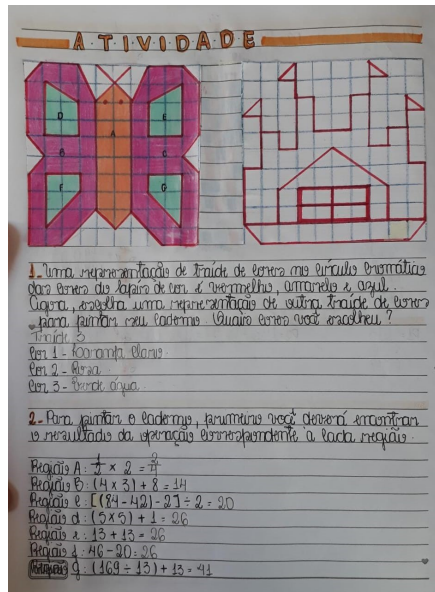 A·T·I·V·I·D·A·D·E
D
E
A
B
C
F
G
1- Uma representação de traide de cores no círculo cromático
das cores do lápis de cor é vermelho, amarelo e azul.
Agora, escolha uma representação de outra traide de cores
para pintar seu caderno. Quais cores você escolheu?
Traide 3
Cor 1 - Laranja Claro.
Cor 2 - Rosa
Cor 3 - Verde água.
2- Para pintar o caderno, primeiro você deverá encontrar
o resultado da operação correspondente à cada região.
Região A: 1/2 × 2 =
Região B: (4 × 3) + 8 = 14
Região c: [(84 - 42) - 2] ÷ 2 = 20
Região d: (5 × 5) + 1 = 26
Região e: 13 + 13 = 26
Região f: 46 - 20 = 26
Região g: (169 ÷ 13) + 13 = 41